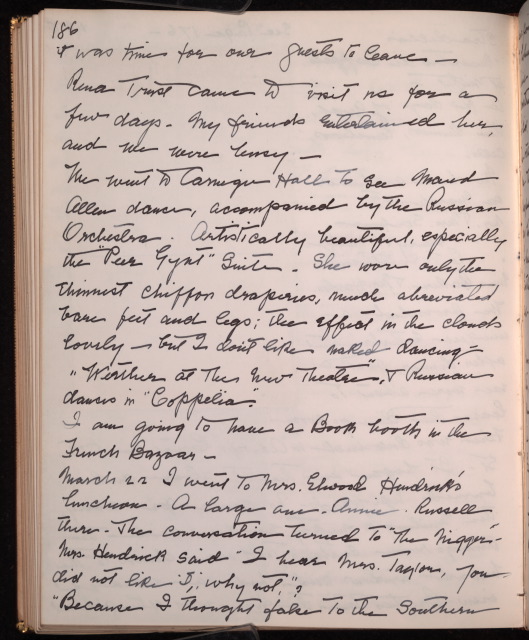 186
it was time for our guests to leave —
Rena Trust came to visit us for a
few days - My friends entertained her,
and we were busy —
We went to Carnegie Hall to see Maud
Allen dance, accompanied by the Russian
Orchestra. Artistically beautiful, especially
the "Peer Gynt" Suite - She wore only the
thinnest chiffon draperies, much abreviated
bare feet and legs; the effect in the clouds
lovely - but I don't like naked dancing -
"Werther at The New Theatre", & Russian
dances in "Coppelia".
I am going to have a Book booth in the
French Bazaar -
March 22 I went to Mrs. Elwood Hendrick's
luncheon - A large one - Annie Russell
there - The conversation turned to "The Nigger" -
Mrs. Hendrick said "I hear Mrs. Taylor, you
did not like it, why not,"?
"Because I thought false to the Southern